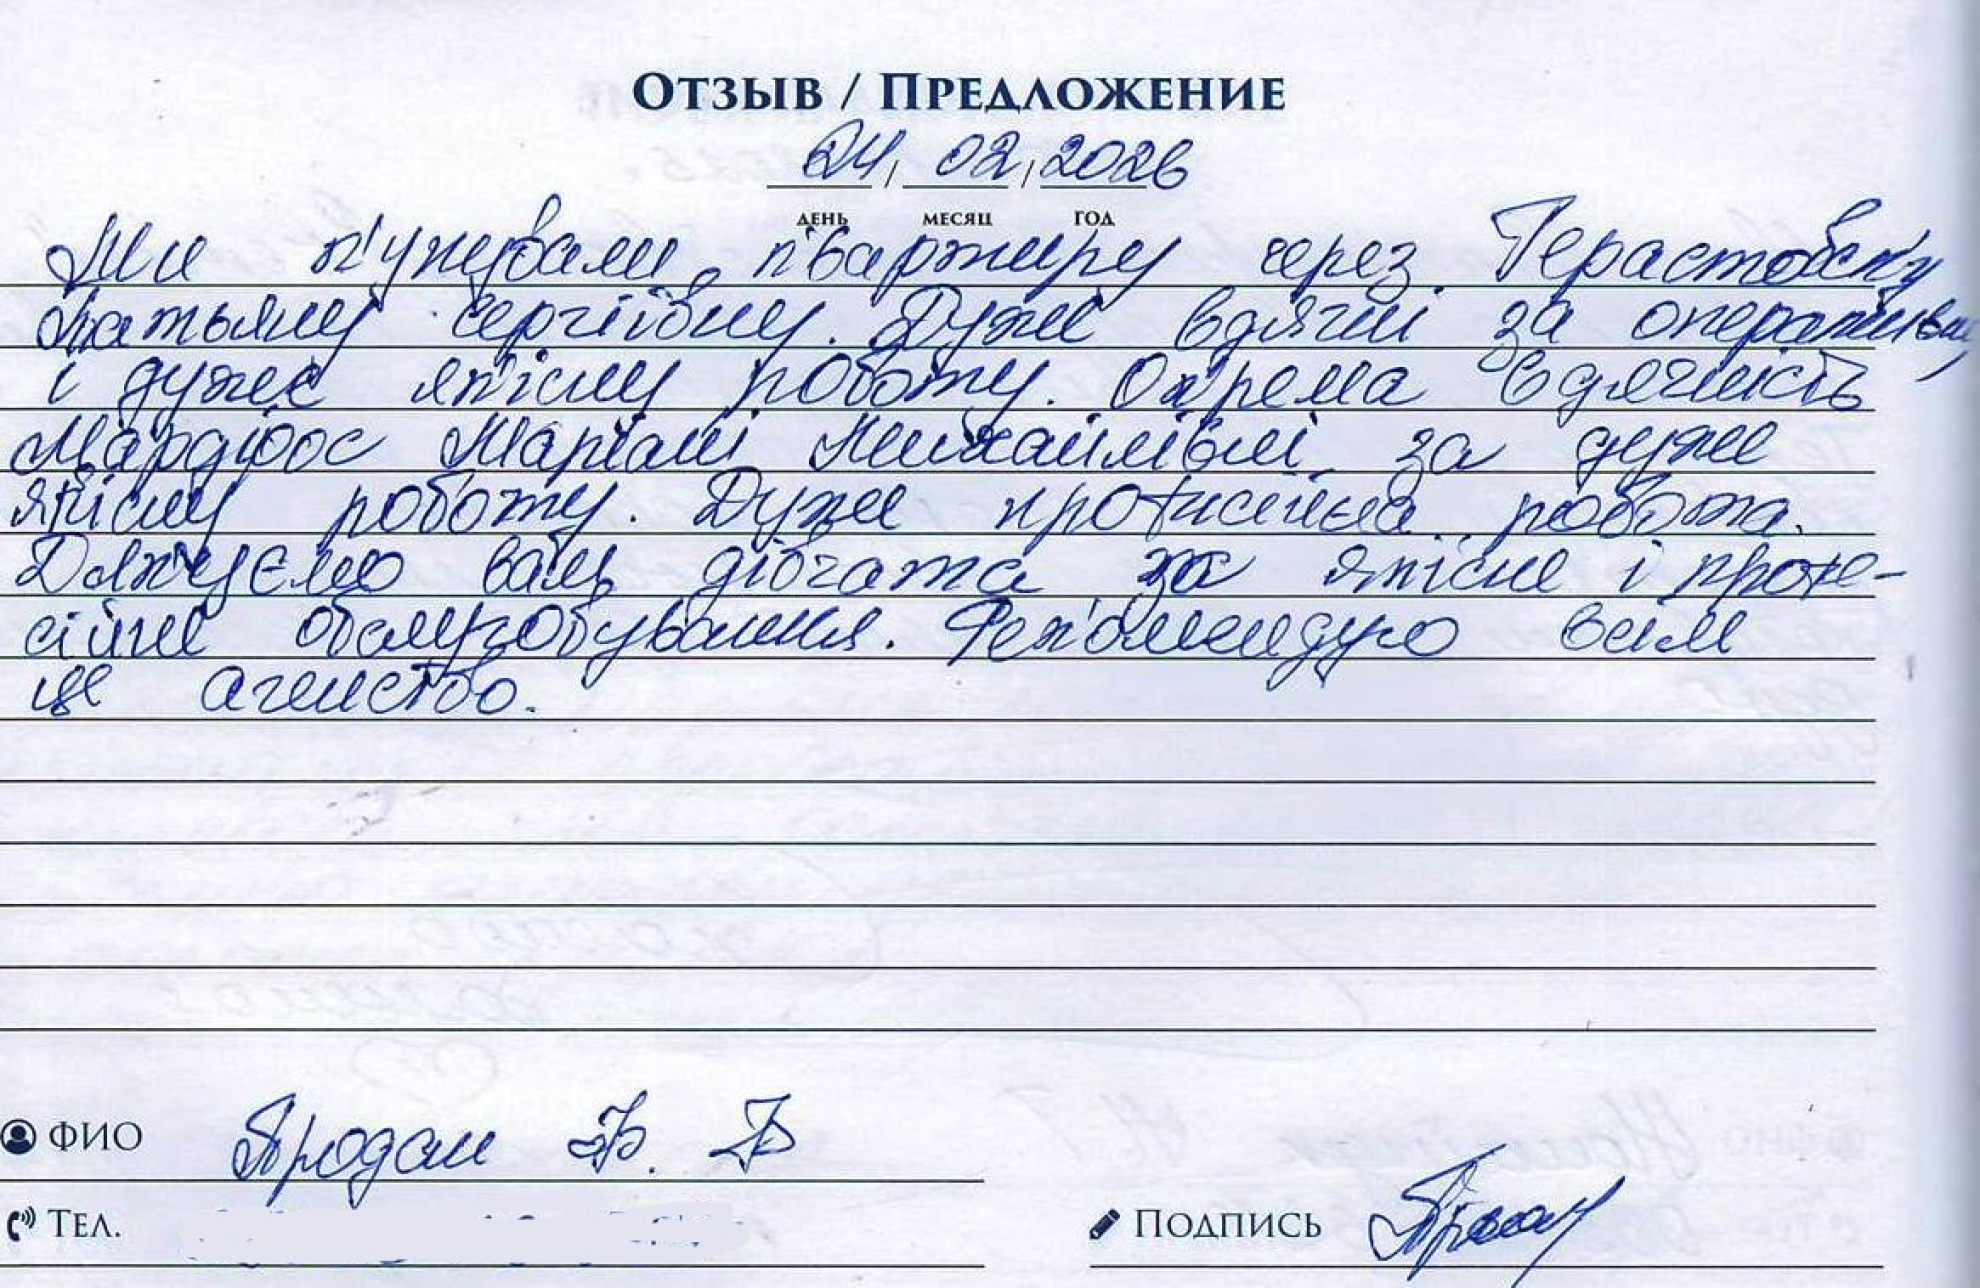 ОТЗЫВ / ПРЕДЛОЖЕНИЕ
24 / 02 / 2026
ДЕНЬ МЕСЯЦ ГОД
Ми купували квартиру через
Татьяну Сергіївну. Дуже вдячні за оперативну,
і дуже якісну роботу. Окрема вдячність
Мардірос Маріані Михайлівні за дуже
якісну роботу. Дуже профисійна робота.
Дякуємо вам дівчата за якісне і профе-
сійне обслуговування. Рекомендую всім
це агенство.
ФИО Продан
ТЕЛ.
ПОДПИСЬ